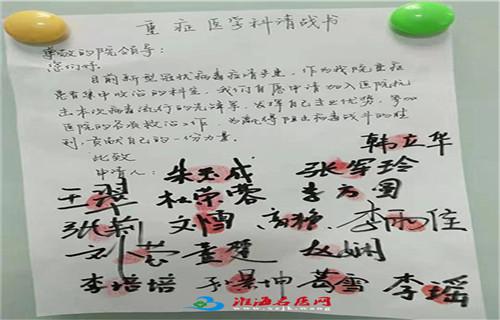 重症医学科请战书
尊敬的院领导:
您们好:
目前新型冠状病毒疫情严重,作为我院重症
患者集中收治的科室,我们自愿申请加入医院抗
击本次病毒流行的先锋军,发挥自己专业优势,参加
医院的各项救治工作,为赢得阻击病毒战斗的胜
利,贡献自己的一份力量。
此致
韩立华
申请人: 朱玉成 张军玲
王翠 杜荣蓉 李方圆
张莉 文雪 高艳 李雨佳
刘芸 董楚 赵娴
李培培 孙景坤 葛雪 李瑶
淮海名医网
www.xzjk.wang